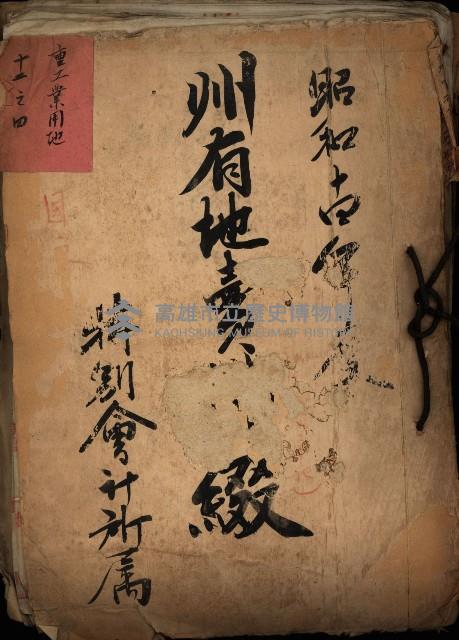 昭和十四年度
州有地賣
綴
特別會計所属
重工業用地
十一之四
高雄市立歷史博物館
KAOHSIUNG MUSEUM OF HISTORY